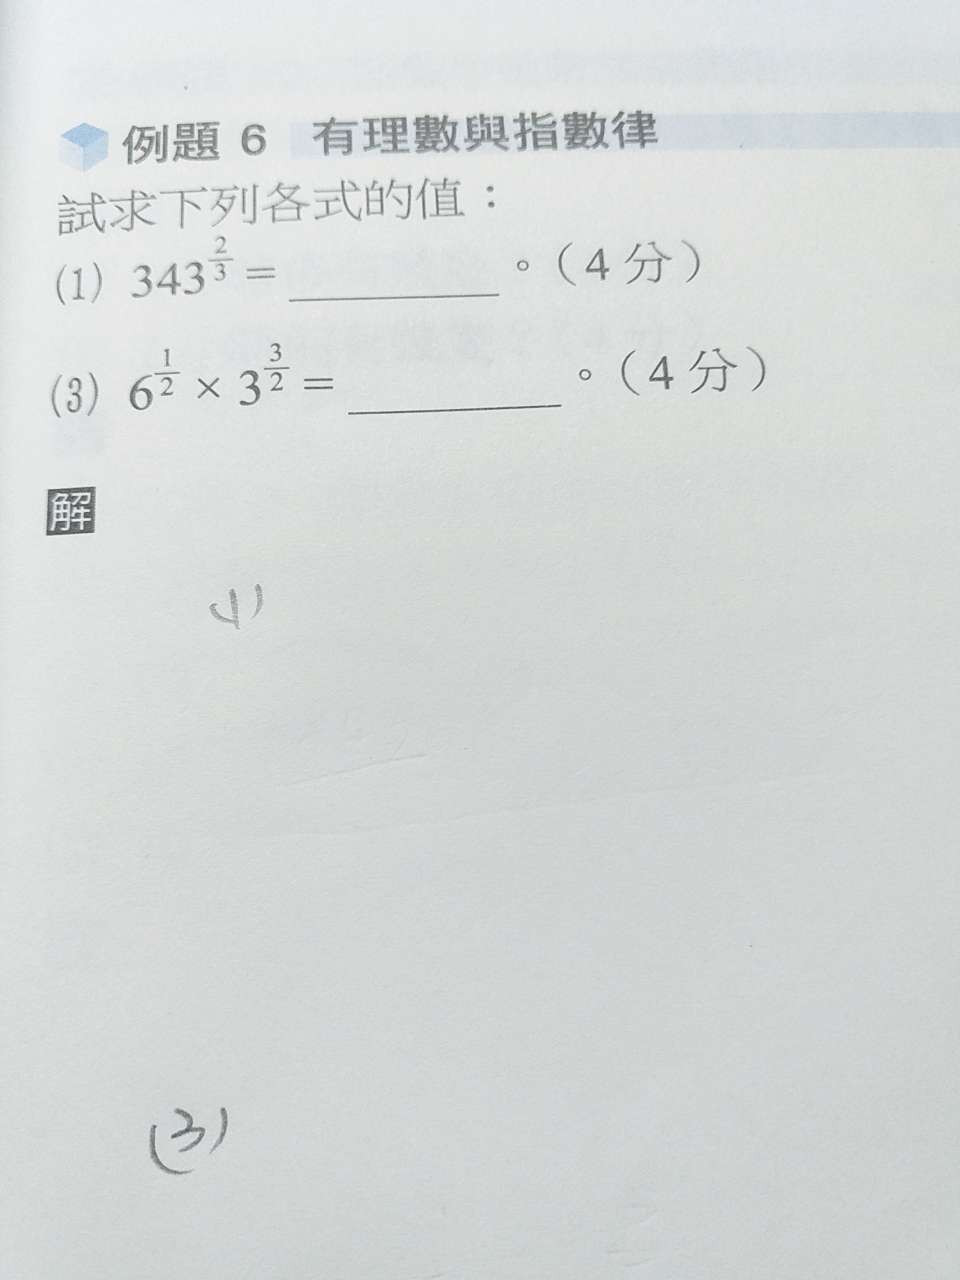 例題 6 有理數與指數律
試求下列各式的值：
(1) 343^{\frac{2}{3}} = ________ 。（4 分）
(3) 6^{\frac{1}{2}} × 3^{\frac{3}{2}} = ________ 。（4 分）
解
(1)
(3)